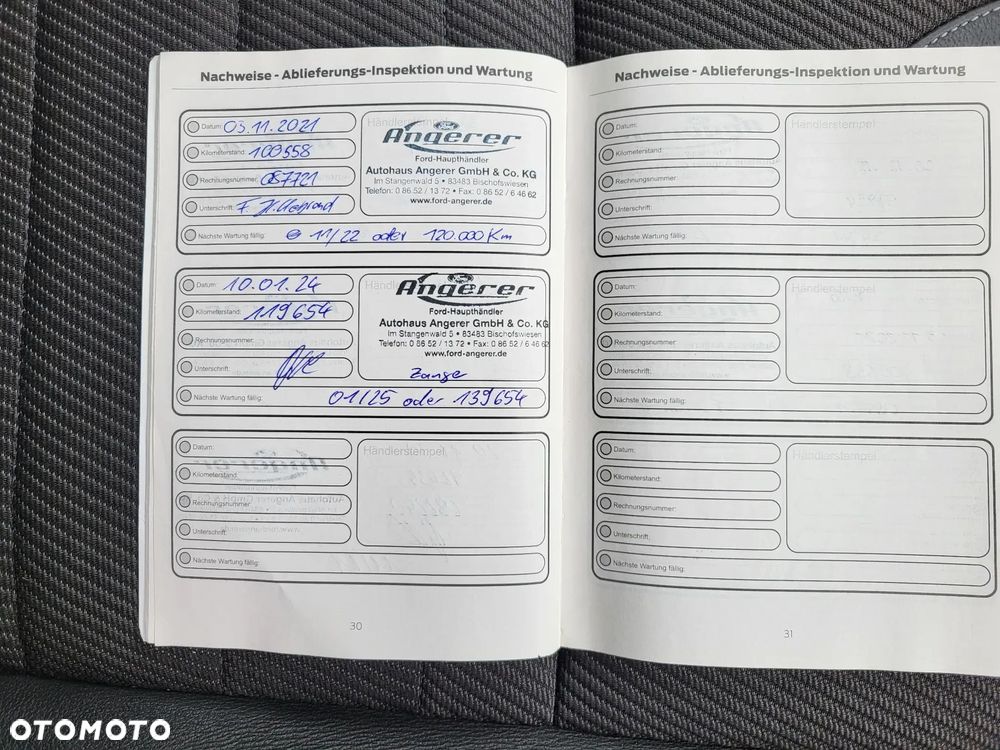 Nachweise - Ablieferungs-Inspektion und Wartung
Datum: 03.11.2021
Kilometerstand: 100558
Rechnungsnummer: 087721
Unterschrift: F.
Nächste Wartung fällig: 11/22 oder 120.000 Km
Händlerstempel
Angerer
Ford-Haupthändler
Autohaus Angerer GmbH & Co. KG
Im Stangenwald 5 • 83483 Bischofswiesen
Telefon: 0 86 52 / 13 72 • Fax: 0 86 52 / 6 46 62
www.ford-angerer.de
Datum: 10.01.24
Kilometerstand: 119654
Rechnungsnummer:
Unterschrift:
Nächste Wartung fällig: 01/25 oder 139654
Angerer
Ford-Haupthändler
Autohaus Angerer GmbH & Co. KG
Im Stangenwald 5 • 83483 Bischofswiesen
Telefon: 0 86 52 / 13 72 • Fax: 0 86 52 / 6 46 62
www.ford-angerer.de
Zange
Datum:
Kilometerstand:
Rechnungsnummer:
Unterschrift:
Nächste Wartung fällig:
Händlerstempel
30
Nachweise - Ablieferungs-Inspektion und Wartung
Datum:
Kilometerstand:
Rechnungsnummer:
Unterschrift:
Nächste Wartung fällig:
Händlerstempel
Datum:
Kilometerstand:
Rechnungsnummer:
Unterschrift:
Nächste Wartung fällig:
Händlerstempel
Datum:
Kilometerstand:
Rechnungsnummer:
Unterschrift:
Nächste Wartung fällig:
Händlerstempel
31
OTOMOTO